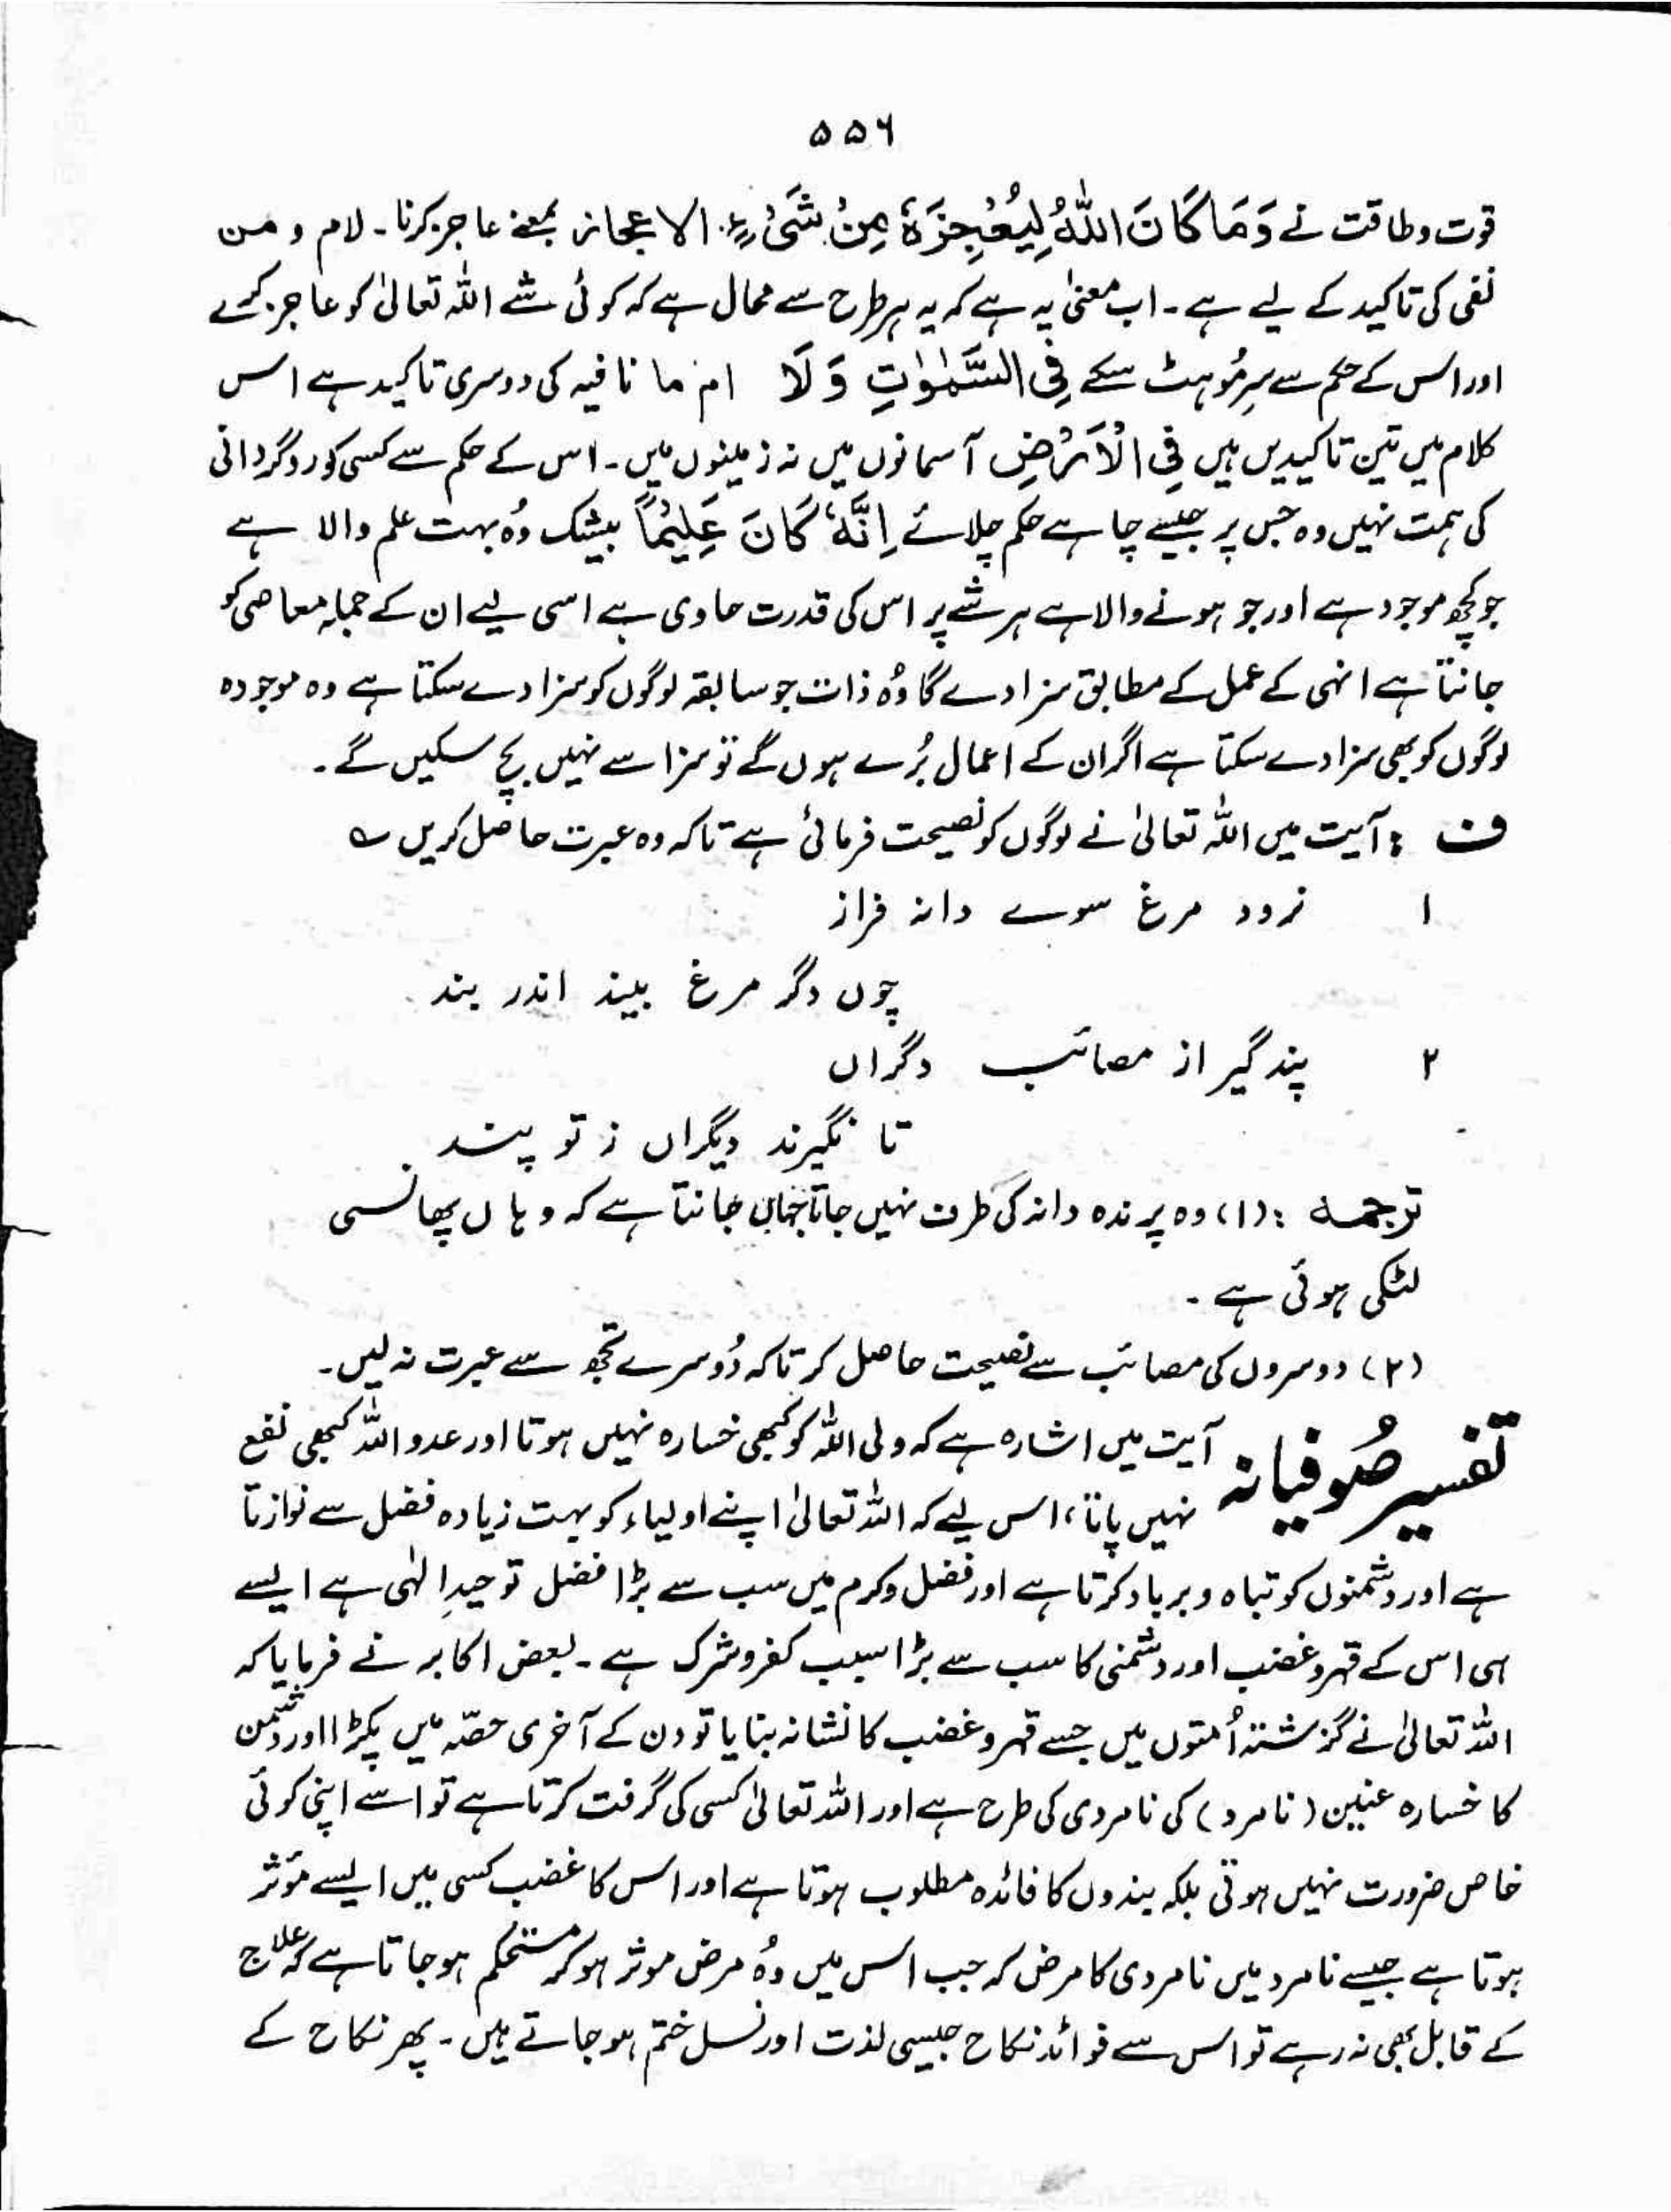 ۵۵۶
قوت و طاقت نے وَمَا كَانَ اللّٰهُ لِيُعْجِزَهٗ مِنْ شَیْءٍ. الاعجاز بمعنے عاجز کرنا۔ لام و من
نفی کی تاکید کے لیے ہے۔ اب معنیٰ یہ ہے کہ یہ ہر طرح سے محال ہے کہ کوئی شے اللہ تعالیٰ کو عاجز کرے
اور اس کے حکم سے سرِمُو ہٹ سکے فِی السَّمٰوٰتِ وَلَا ام ما نافیہ کی دوسری تاکید ہے اس
کلام میں تین تاکیدیں ہیں فِی الْاَرْضِ آسمانوں میں نہ زمینوں میں۔ اس کے حکم سے کسی کو روگردانی
کی ہمت نہیں وہ جس پر جیسے چاہے حکم چلائے اِنَّهٗ كَانَ عَلِيْمًا بیشک وُہ بہت علم والا ہے
جو کچھ موجود ہے اور جو ہونے والا ہے ہر شے پر اس کی قدرت حاوی ہے اسی لیے ان کے جملہ معاصی کو
جانتا ہے انہی کے عمل کے مطابق سزا دے گا وُہ ذات جو سابقہ لوگوں کو سزا دے سکتا ہے وہ موجودہ
لوگوں کو بھی سزا دے سکتا ہے اگر ان کے اعمال بُرے ہوں گے تو سزا سے نہیں بچ سکیں گے۔
ف : آیت میں اللہ تعالیٰ نے لوگوں کو نصیحت فرمائی ہے تاکہ وہ عبرت حاصل کریں ؎
۱ نرود مرغ سوے دانہ فراز
چوں دگر مرغ بیند اندر بند
۲ پند گیر از مصائب دگراں
تا نگیرند دیگراں ز تو پند
ترجمہ : (۱) وہ پرندہ دانہ کی طرف نہیں جاتا جہاں جانتا ہے کہ وہاں پھانسی
لٹکی ہوئی ہے ۔
(۲) دوسروں کی مصائب سے نصیحت حاصل کر تاکہ دُوسرے تجھ سے عبرت نہ لیں۔
تفسیر صُوفیانہ آیت میں اشارہ ہے کہ ولی اللہ کو کبھی خسارہ نہیں ہوتا اور عدو اللہ کبھی نفع
نہیں پاتا، اس لیے کہ اللہ تعالیٰ اپنے اولیاء کو بہت زیادہ فضل سے نوازتا
ہے اور دشمنوں کو تباہ و برباد کرتا ہے اور فضل و کرم میں سب سے بڑا فضل توحیدِ الٰہی ہے ایسے
ہی اس کے قہر و غضب اور دشمنی کا سب سے بڑا سبب کفر و شرک ہے۔ بعض اکابر نے فرمایا کہ
اللہ تعالیٰ نے گزشتہ اُمتوں میں جسے قہر و غضب کا نشانہ بنایا تو دن کے آخری حصّہ میں پکڑا اور دشمن
کا خسارہ عنین (نامرد) کی نامردی کی طرح ہے اور اللہ تعالیٰ کسی کی گرفت کرتا ہے تو اسے اپنی کوئی
خاص ضرورت نہیں ہوتی بلکہ بندوں کا فائدہ مطلوب ہوتا ہے اور اس کا غضب کسی میں ایسے مؤثر
ہوتا ہے جیسے نامرد میں نامردی کا مرض کہ جب اس میں وُہ مرض موثر ہو کر مستحکم ہو جاتا ہے کہ علاج
کے قابل بھی نہ رہے تو اس سے فوائد نکاح جیسی لذت اور نسل ختم ہو جاتے ہیں۔ پھر نکاح کے